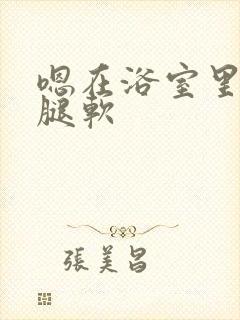 嗯在浴室里
腿軟
張美昌